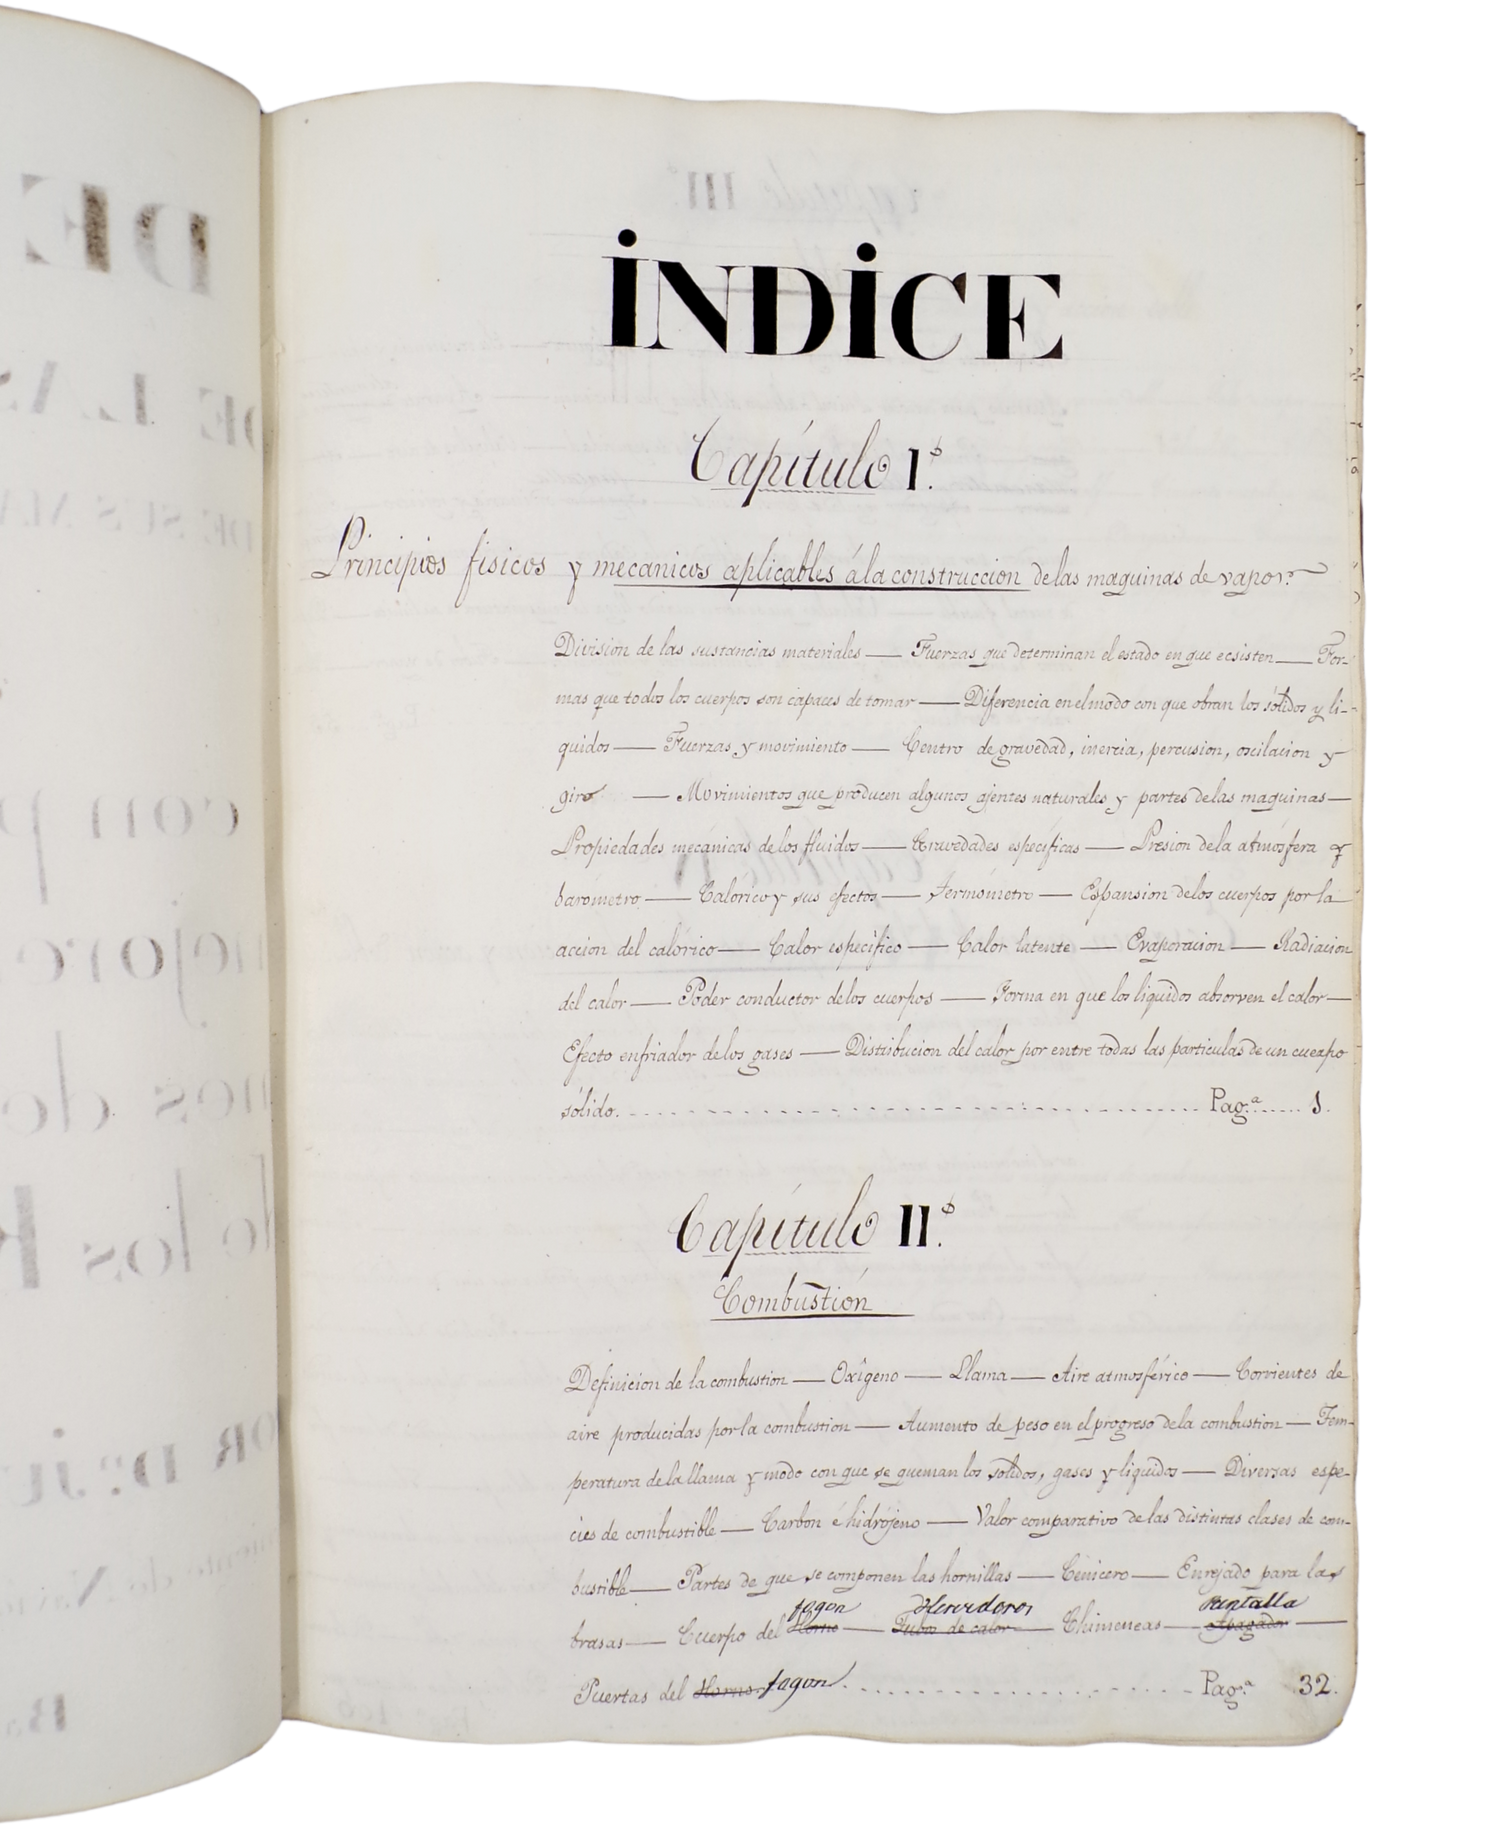 İNDİCE
Capítulo I.º
Principios fisicos y mecanicos aplicables á la construccion de las maquinas de vapor.
Division de las sustancias materiales — Fuerzas que determinan el estado en que ecsisten — For-
mas que todos los cuerpos son capaces de tomar — Diferencia en el modo con que obran los sólidos y lí-
quidos — Fuerzas y movimiento — Centro de gravedad, inercia, percusion, oscilacion y
giro — Movimientos que producen algunos ajentes naturales y partes de las maquinas —
Propiedades mecánicas de los fluidos — Gravedades específicas — Presion de la atmósfera y
barómetro — Calórico y sus efectos — Termómetro — Espansion de los cuerpos por la
accion del calórico — Calor específico — Calor latente — Evaporacion — Radiacion
del calor — Poder conductor de los cuerpos — Forma en que los liquidos absorven el calor —
Efecto enfriador de los gases — Distribucion del calor por entre todas las particulas de un cuerpo
sólido. Pag.ª 1.
Capítulo II.º
Combustión
Definicion de la combustion — Oxígeno — Llama — Aire atmosférico — Corrientes de
aire producidas por la combustion — Aumento de peso en el progreso de la combustion — Tem-
peratura de la llama y modo con que se queman los solidos, gases y liquidos — Diversas espe-
cies de combustible — Carbon é hidrójeno — Valor comparativo de las distintas clases de com-
bustible — Partes de que se componen las hornillas — Cenicero — Enrejado para las
fogon Hervidores Pantalla
brasas — Cuerpo del Horno — Tubos de calor — Chimeneas — Apagador —
Puertas del Horno fogon. Pag.ª 32.